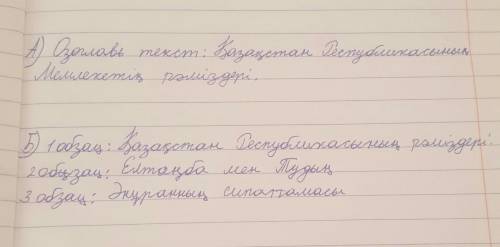 А) Озоглавь текст: Қазақстан Республикасының
Мемлекетің рәміздері.
Б) 1 обзац: Қазақстан Республикасының рәміздері.
2 обцзац: Елтаңба мен Тудың
3 абзац: Әнұранның сипаттамасы